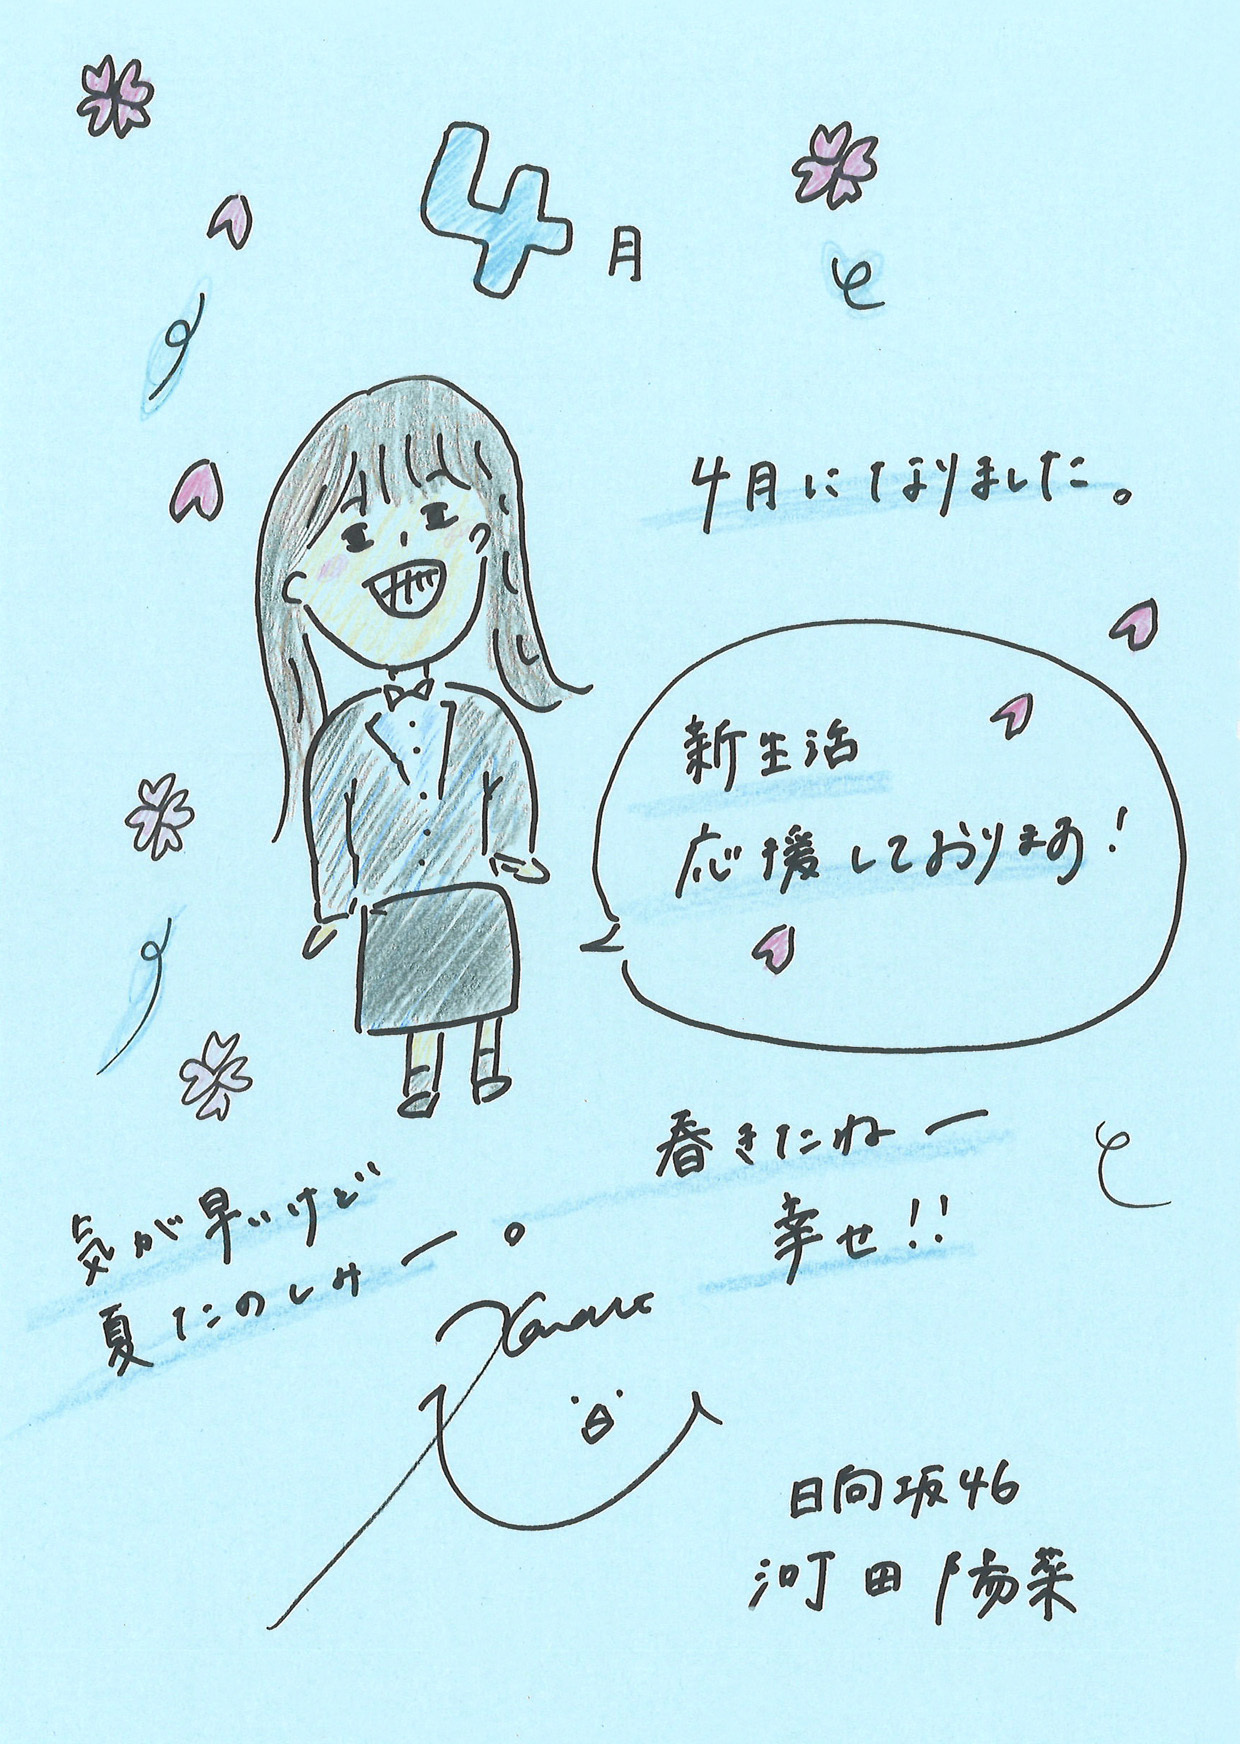 4月
4月になりました。
新生活
応援しております!
春きたねー
幸せ!!
気が早いけど
夏たのしみー。
Kanare
日向坂46
河田陽菜